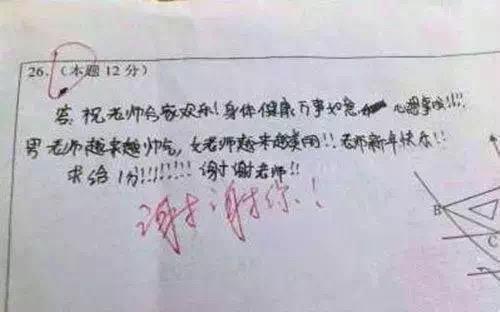 26.（本题12分）
答：祝老师合家欢乐！身体健康 万事如意 心想事成!!!!
男老师越来越帅气，女老师越来越美丽!!老师新年快乐!!
求给1分!!!!!!!! 谢谢老师!!
谢谢你！！
B
C